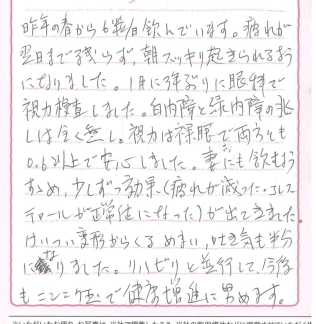 昨年の春から6粒/日飲んでいます。疲れが
翌日まで残らず、朝スッキリ起きられるよう
になりました。1月に3年ぶりに眼科で
視力検査しました。白内障と緑内障の兆
しは全く無し。視力は裸眼で両方とも
0.6以上で安心しました。妻にも飲むよう
すすめ、少しずつ効果(疲れが減った・コレス
テロールが正常値になった)が出てきました。
けいつい変形からくるめまい、吐き気も半分
になりました。リハビリと並行して、今後
もニンニク玉で健康増進に努めます。